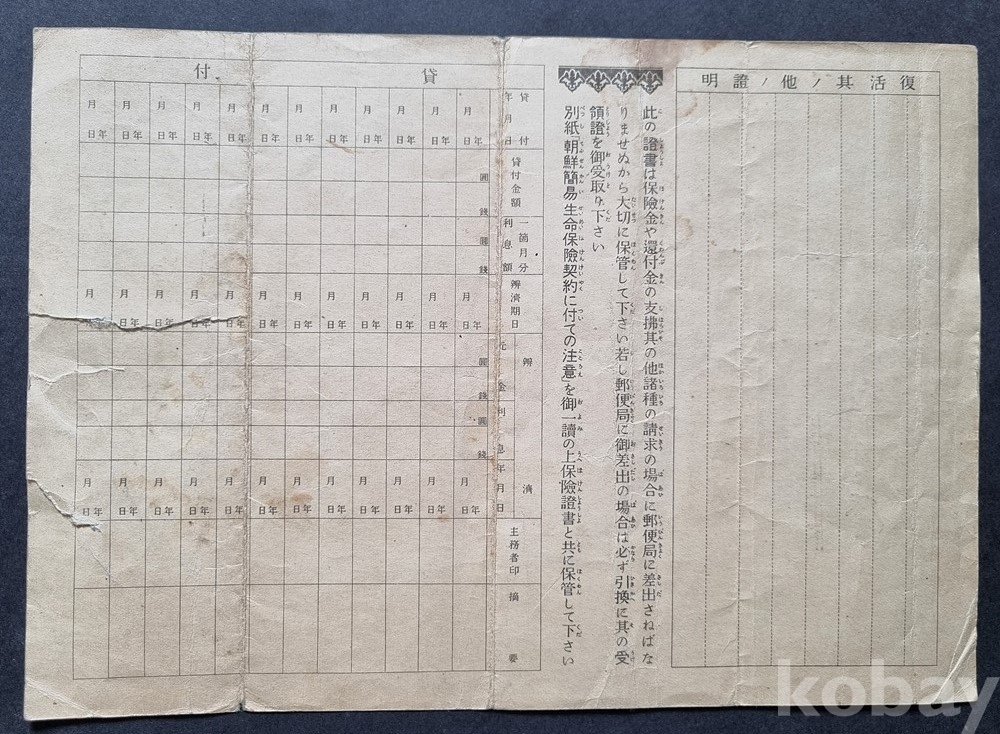 復活其ノ他ノ證明
此の證書は保險金や還付金の支拂其の他諸種の請求の場合に郵便局に差出さねばな
りませぬから大切に保管して下さい若し郵便局に御差出の場合は必ず引換に其の受
領證を御受取り下さい
別紙「朝鮮簡易生命保險契約に付ての注意」を御一讀の上保險證書と共に保管して下さい
貸付
貸付年月日
年月日 年月日 年月日 年月日 年月日 年月日 年月日 年月日 年月日 年月日 年月日 年月日
貸付金額
圓 錢
一箇月分利息額
圓 錢
辨濟期日
年月日 年月日 年月日 年月日 年月日 年月日 年月日 年月日 年月日 年月日 年月日 年月日
辨濟
元金
圓 錢
利息
圓 錢
年月日
年月日 年月日 年月日 年月日 年月日 年月日 年月日 年月日 年月日 年月日 年月日 年月日
主務者印
摘要
kobay